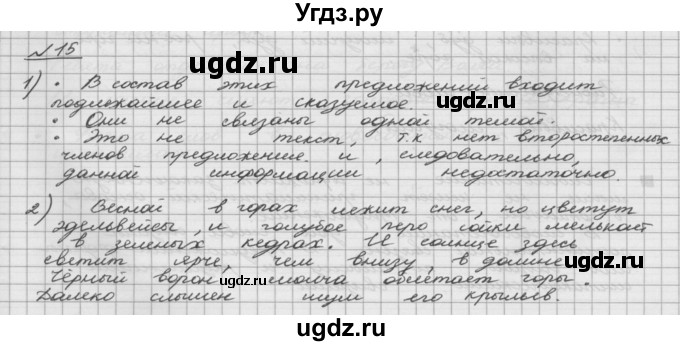 Угдз.ру
№15
1) • В состав этих предложений входит
подлежайшее и сказуемое.
• Они не связаны одной темой.
• Это не текст, т.к нет второстепенных
членов предложение. и, следовательно,
данной информации недостаточно.
2) Весной в горах лежит снег, но цветут
эдельвейсы, и голубое перо сойки мелькает
в зеленых кедрах. И солнце здесь
светит ярче, чем внизу, в долине.
Чёрный ворон молча облетает горы.
Далеко слышен шум его крыльев.
uдgz.ru
uдgz.ru
uдgz.ru
uдgz.ru
uдgz.ru
uдgz.ru
Угдз.ру